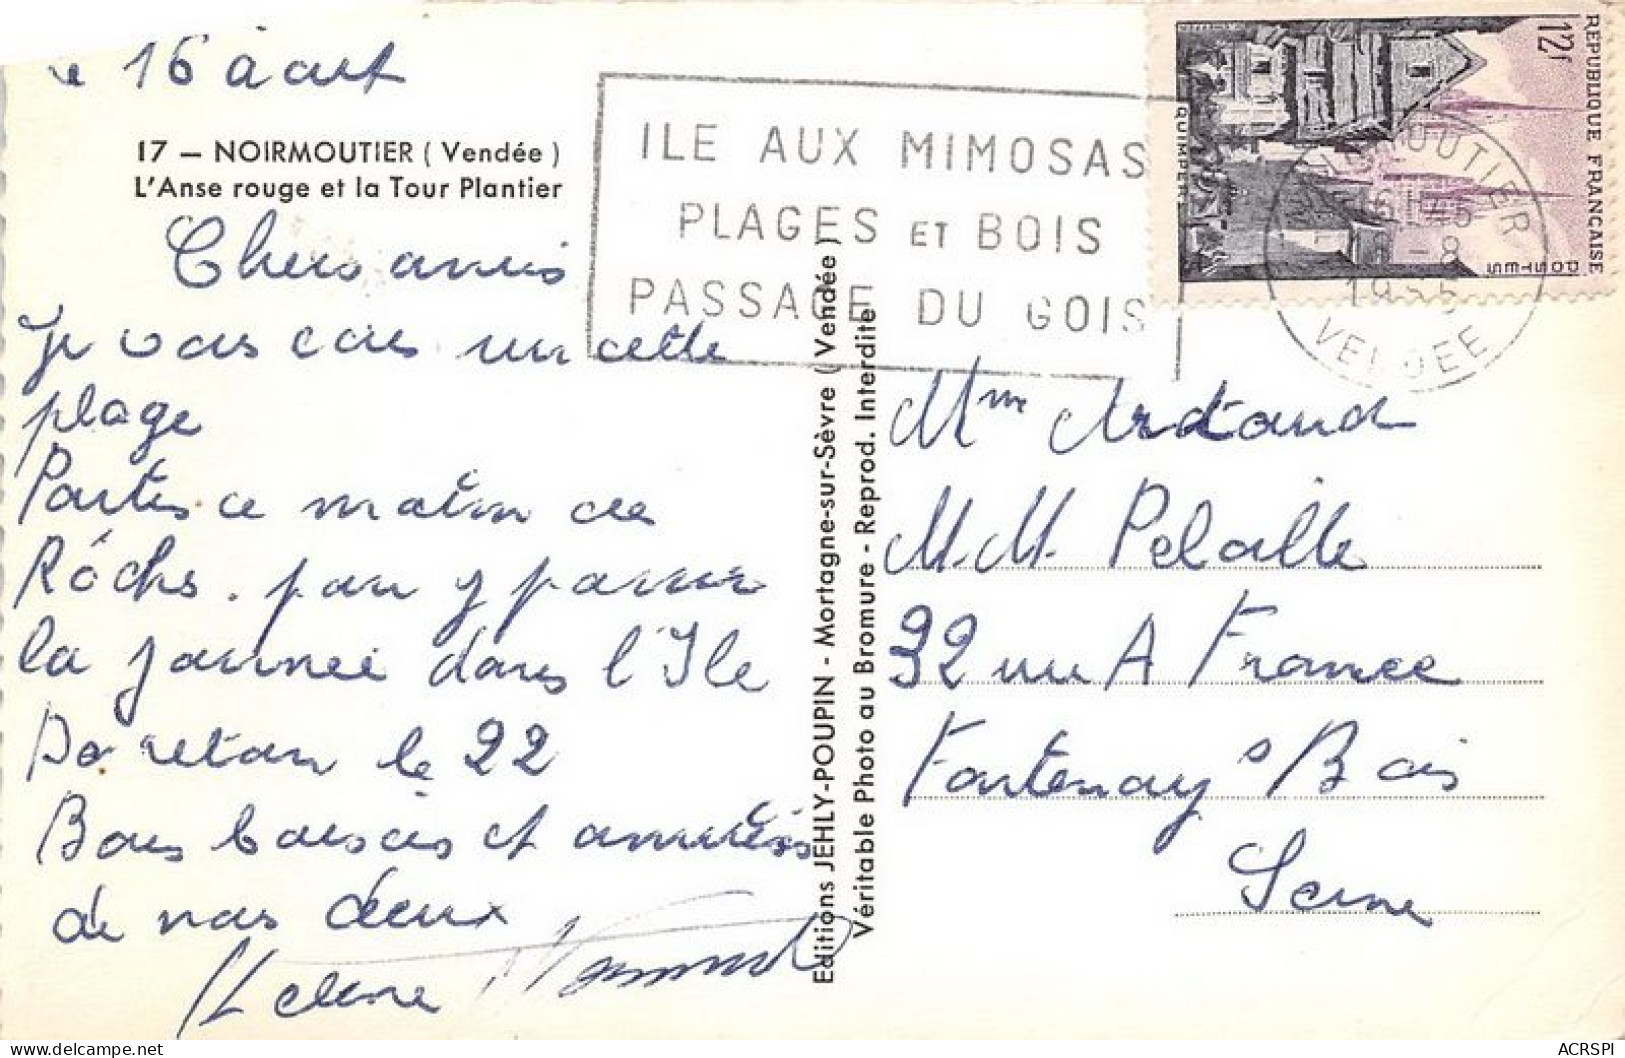 Le 16 août
17 — NOIRMOUTIER ( Vendée )
L'Anse rouge et la Tour Plantier
Chers amis
Je vous écris sur cette
plage
Partis ce matin des
Roches. pour y passer
la journée dans l'Ile
retour le 22
Bons baisers et amitiés
de nous deux
Helene
ILE AUX MIMOSAS
PLAGES ET BOIS
PASSAGE DU GOIS
REPUBLIQUE FRANÇAISE
12f
QUIMPER
POSTES
NOIRMOUTIER
1955
VENDEE
Editions JEHLY-POUPIN - Mortagne-sur-Sèvre ( Vendée )
Véritable Photo au Bromure - Reprod. Interdite
Mme
M.M.
32 rue A France
Fontenay s Bois
Seine
ACRSPI